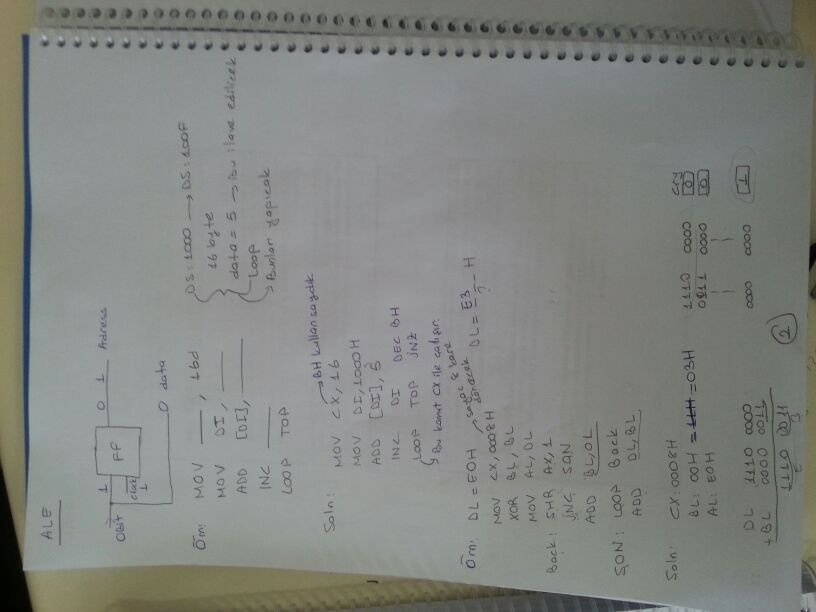 ALE
1 0 1 Adress
FF
0bit clock 1
0 data
Örn: MOV ___, 16d
MOV DI, ___
ADD [DI], ___
INC ___
LOOP TOP
DS:1000 → DS:100F
16 byte
data = 5 → bu ilave edilicek
Loop
Bunları yapıcak
Soln: MOV CX, 16 → BH kullansaydık
MOV DI, 1000H
ADD [DI], 5
INC DI DEC BH
LOOP TOP JNZ
Bu komut CX ile çalışır.
Örn: DL = E0H DL = E3 H
?
MOV CX, 0008H
XOR BL, BL
MOV AL, DL
Back: SHR AX, 1
JNC SON
ADD BL, 01
SON: LOOP Back
ADD DL, BL
Soln: CX: 0008H
BL: 00H = 03H
AL: E0H
1110 0000 0
0011 0000 0
0000 0000 1
DL 1110 0000
+ BL 0000 0011
1110 0011
E 3
2